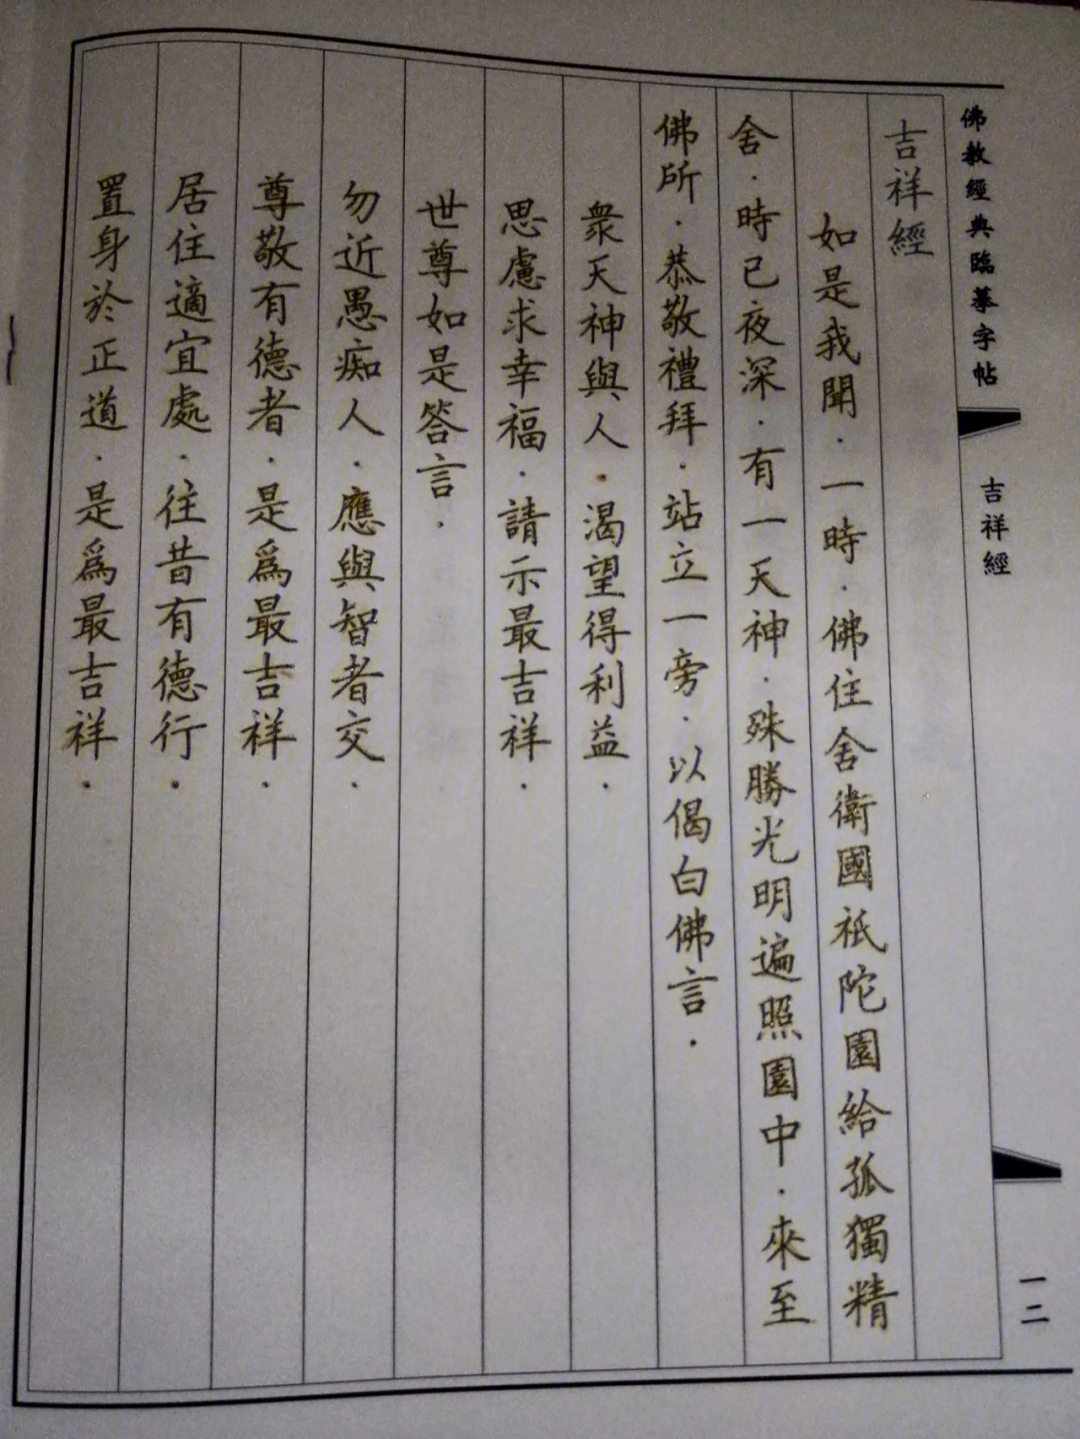 佛教經典臨摹字帖
吉祥經
一二
吉祥經
如是我聞．一時．佛住舍衛國祇陀園給孤獨精
舍．時已夜深．有一天神．殊勝光明遍照園中．來至
佛所．恭敬禮拜．站立一旁．以偈白佛言．
衆天神與人．渴望得利益．
思慮求幸福．請示最吉祥．
世尊如是答言．
勿近愚痴人．應與智者交．
尊敬有德者．是爲最吉祥．
居住適宜處．往昔有德行．
置身於正道．是爲最吉祥．